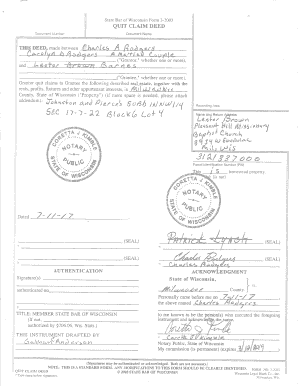 State Bar of Wisconsin Form 3-2003
QUIT CLAIM DEED
Document Number
Document Name
THIS DEED, made between Charles A Rodgers
Carolyn D Rodgers A Married Couple
("Grantor," whether one or more),
and Lester Brown Barnes
("Grantee," whether one or more).
Grantor quit claims to Grantee the following described real estate, together with the
rents, profits, fixtures and other appurtenant interests, in Milwaukee
County, State of Wisconsin ("Property") (if more space is needed, please attach
addendum):
Johnston and Pierce's SUBD IN NW 1/4
SEC 17-7-22 Block 6 Lot 4
Recording Area
Name and Return Address
Lester Brown
Pleasant Hill Missionary
Baptist Church
3121837000
Parcel Identification Number (PIN)
This is homestead property.
(is) (is not)
CORETTA J KIMBLE
NOTARY
PUBLIC
STATE OF WISCONSIN
CORETTA J KIMBLE
NOTARY
PUBLIC
STATE OF WISCONSIN
Dated 7-11-17
(SEAL)
(SEAL)
Charles Rodgers
(SEAL)
(SEAL)
Charles Rodgers
AUTHENTICATION
Signature(s)
authenticated on
TITLE: MEMBER STATE BAR OF WISCONSIN
(If not,
authorized by Wis. Stat. § 706.06)
THIS INSTRUMENT DRAFTED BY:
ACKNOWLEDGMENT
State of Wisconsin,
Milwaukee County.
Personally came before me on 7-11-17
the above named Charles Rodgers
to me known to be the person(s) who executed the foregoing
instrument and acknowledge the same.
Coretta J Kimble
Notary Public, State of Wisconsin
My commission (is permanent) (expires
(Signatures may be authenticated or acknowledged. Both are not necessary.)
NOTE: THIS IS A STANDARD FORM. ANY MODIFICATIONS TO THIS FORM SHOULD BE CLEARLY IDENTIFIED.
QUIT CLAIM DEED
STATE BAR OF WISCONSIN
FORM NO. 3-2003